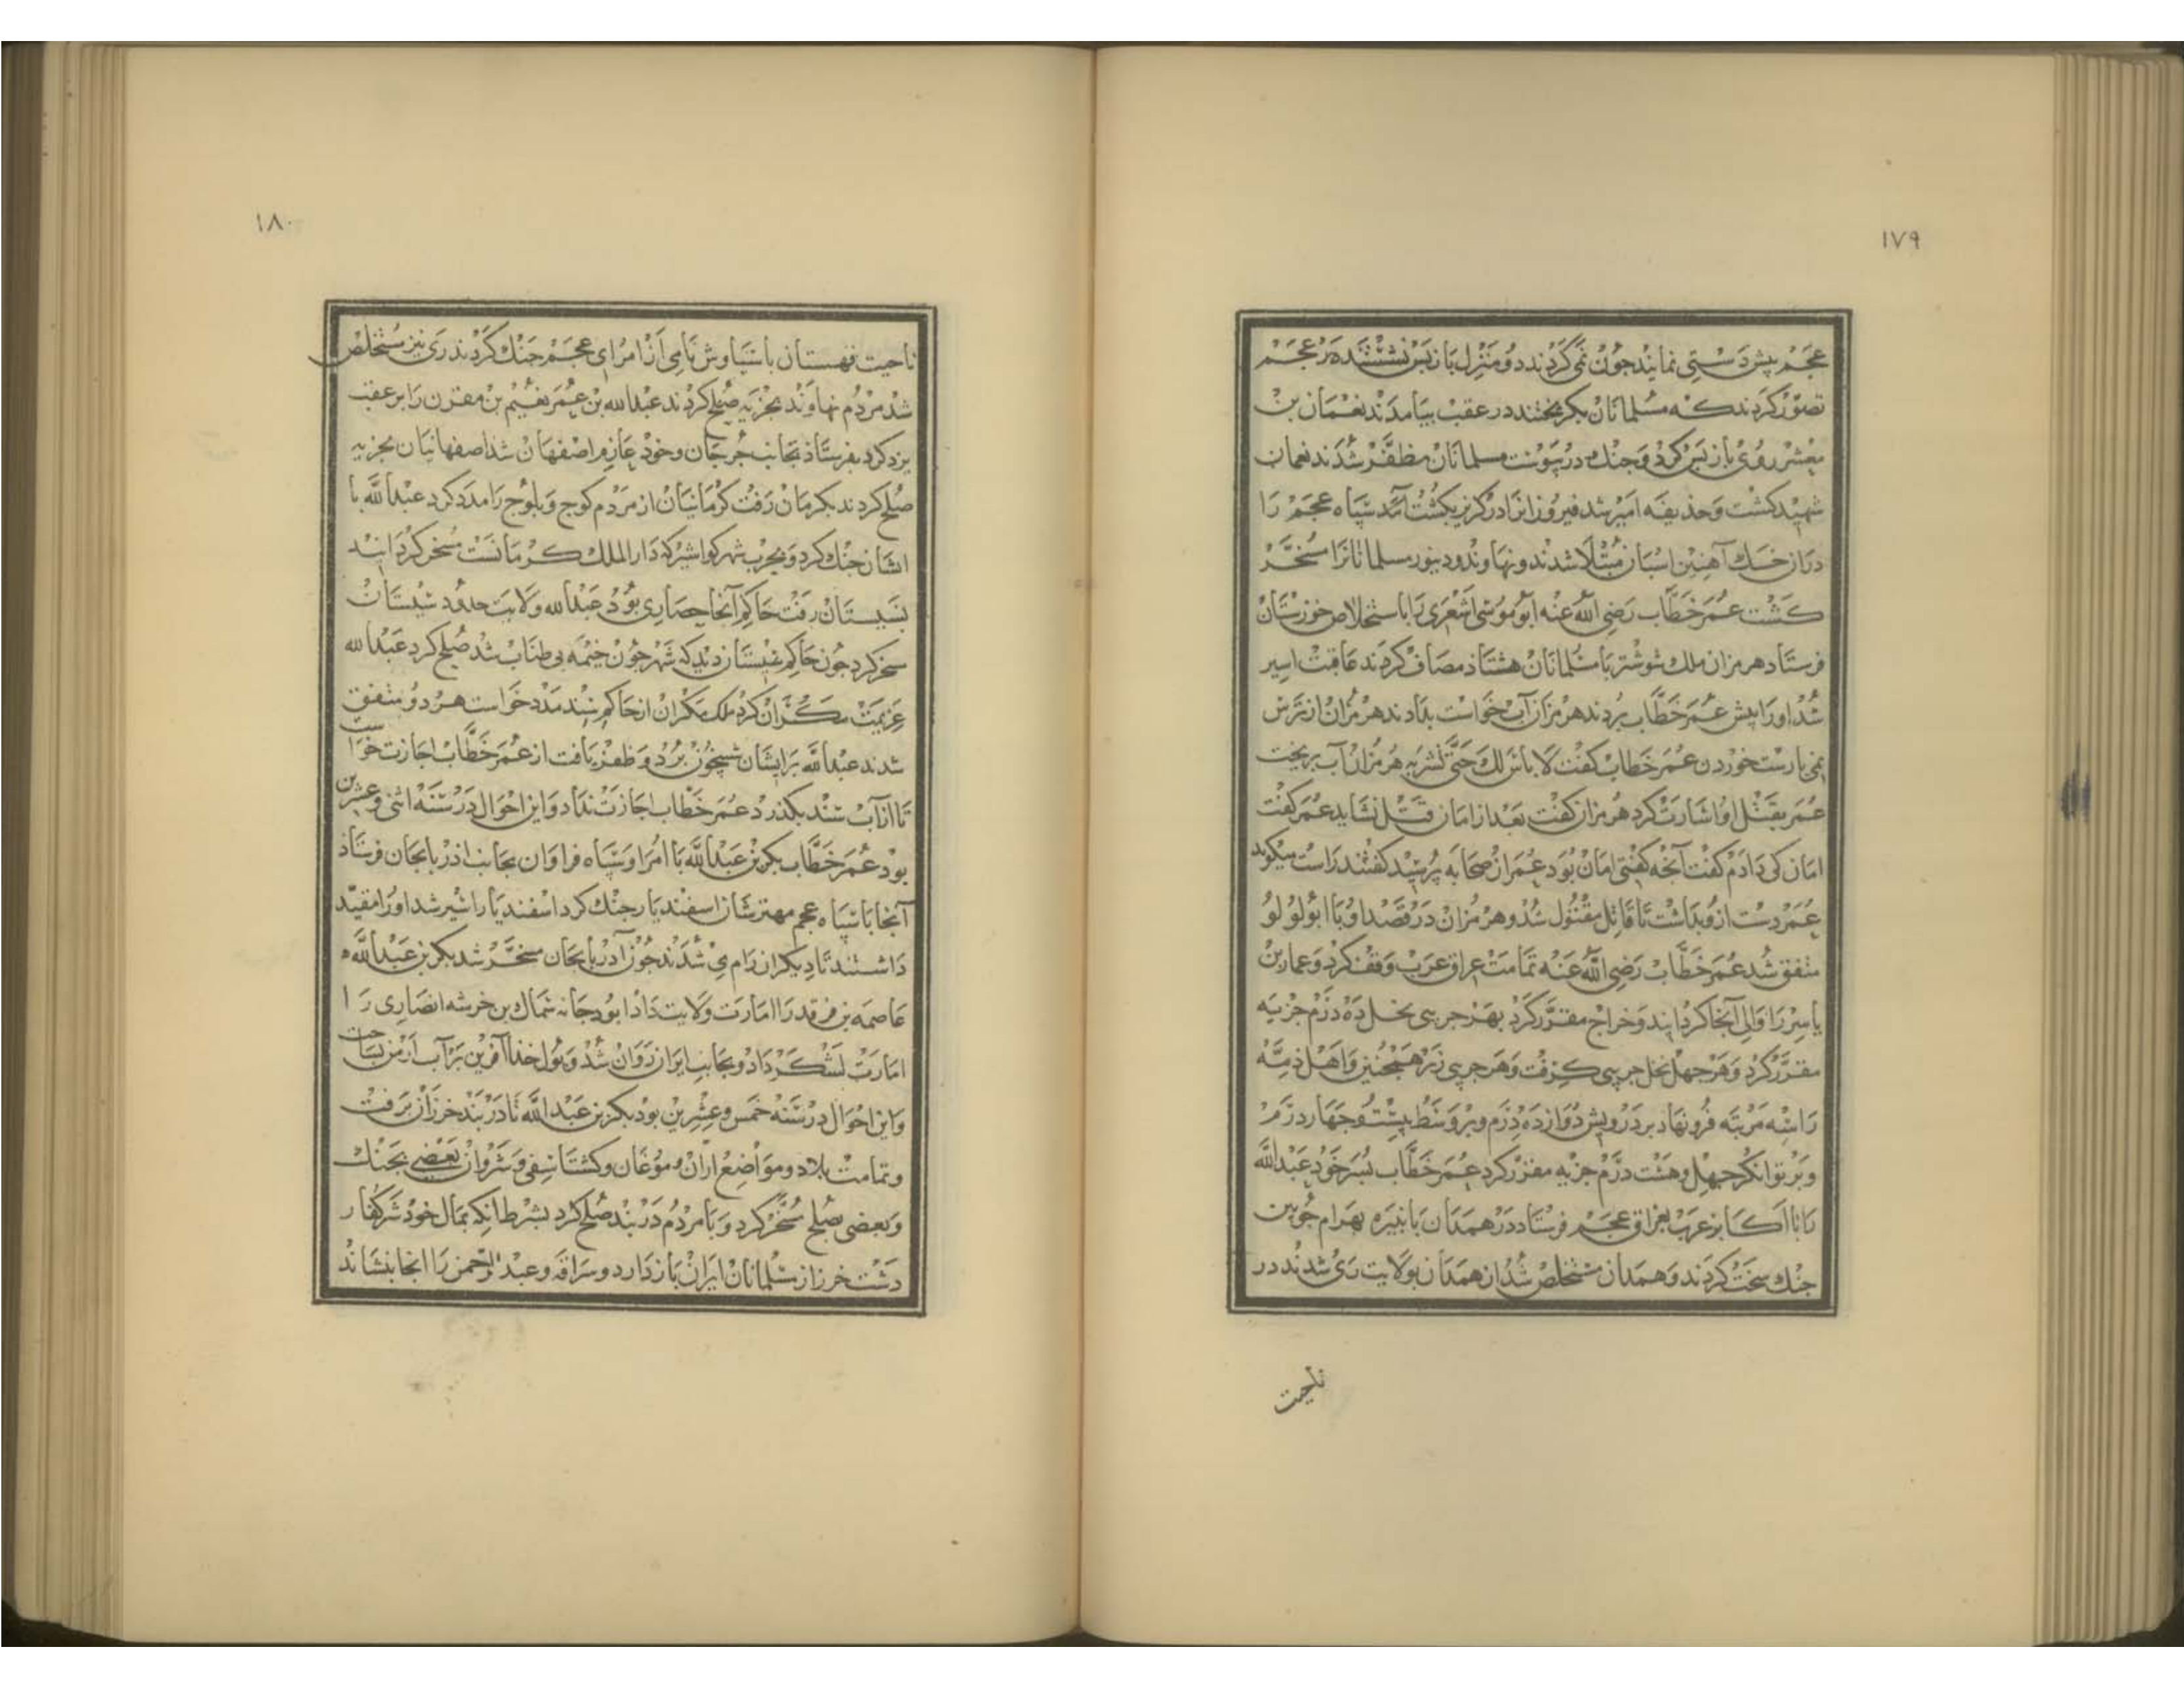 ۱۷۹
عجم پیش دستی نمایند جون نمی کردند دو منزل باز پس نشستند در عجم
تصور کردند که مسلمانان بکریختند در عقب بیامدند نعمان بن
معشر روی باز پس کرد و جنک در پیوست مسلمانان مظفر شدند نعمان
شهید کشت و حذیفه امیر شد فیروزانرا در کریز بکشت آمد سپاه عجم را
دران خسک آهنین اسبان مبتلا شدند و نهاوند و دینور مسلمانانرا مسخر
کشت عمر خطاب رضی الله عنه ابو موسی اشعری را باستخلاص خوزستان
فرستاد هرمزان ملک شوشتر با مسلمانان هشتاذ مصاف کردند عاقبت اسیر
شد اورا پیش عمر خطاب بردند هرمزان آب خواست بدادند هرمزان از ترس
نمی یارست خوردن عمر خطاب کفت لا باس لک حتی تشربه هرمزان آب بریخت
عمر بقتل او اشارت کرد هرمزان کفت بعد از امان قتل نشاید عمر کفت
امان کی دادم کفت آنجه کفتی امان بود عمر از صحابه پرسید کفتند راست میکوید
عمر دست ازو بداشت تا قاتل مقتول شد و هرمزان در قصد او با ابولولو
متفق شد عمر خطاب رضی الله عنه تمامت عراق عرب وقف کرد و عمار بن
یاسر را والی آنجا کردانید و خراج مقرر کرد بهر جریبی نخل ده درم جزیه
مقرر کرد و هر جهل نخل جریبی کرفت و هر جریبی زر همجنین و اهل ذمه
را سه مرتبه فرو نهاد بر درویش دوازده درم و بر وسط بیست و جهار درم
و بر توانکر جهل و هشت درم جزیه مقرر کرد عمر خطاب پسر خود عبدالله
را با اکابر عرب بعراق عجم فرستاد در همدان با نبیره بهرام جوبین
جنک سخت کردند و همدان مستخلص شد از همدان بولایت ری شدند در
ناحیت
۱۸۰
ناحیت قهستان با سیاوش نامی از امرای عجم جنک کردند ری نیز مستخلص
شد مردم نهاوند بجزیه صلح کردند عبدالله بن عمر نعیم بن مقرن را بر عقب
یزدکرد بفرستاذ بجانب جرجان و خوذ عازم اصفهان شد اصفهانیان بجزیه
صلح کردند بکرمان رفت کرمانیان از مردم کوج و بلوج را مدد کرد عبدالله با
اشان جنک کرد و بحرب شهر کواشیر که دار الملک کرمانست مسخر کردانید
بسیستان رفت حاکم آنجا حصاری بود عبدالله ولایت حدود سیستان
سخر کرد جون حاکم سیستان دید که شهر جون خیمه بی طناب شد صلح کرد عبدالله
عزیمت مکران کرد ملک مکران از حاکم سند مدد خواست هر دو متفق
شدند عبدالله بر ایشان شبیخون برد و ظفر یافت از عمر خطاب اجازت خواست
تا از آب سند بکذرد عمر خطاب اجازت نداد و این احوال در سنه اثنی و عشرین
بود عمر خطاب بکر بن عبدالله با امرا و سپاه فراوان بجانب اذربایجان فرستاذ
آنجا با سپاه عجم مهترشان اسفندیار جنک کرد اسفندیار اسیر شد اورا مقید
داشتند تا دیکران رام می شدند جون آذربایجان مسخر شد بکر بن عبدالله
عاصمه بن فرقد را امارت ولایت داد ابو دجانه سماک بن خرشه انصاری را
امارت لشکر داد و بجانب ایران روان شد و پول خذا آفرین بر آب ارس بساخت
و این احوال در سنه خمس و عشرین بود بکر بن عبدالله تا دربند خرزان برفت
و تمامت بلاد و مواضع اران و موغان و کشتاسفی و شروان بعضی بجنک
و بعضی بصلح سخر کرد و با مردم دربند صلح کرد بشرط انکه بمال خود شر کفار
دشت خرز از مسلمانان ایران باز دارد و سراقه و عبد الرحمن را انجا بنشاند